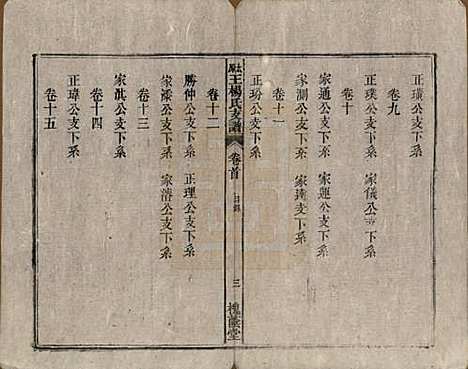 正璜公支下系
卷九
正璞公支下系　家儀公支下系
卷十
家通公支下系　家蓮公支下系
家測公支下系　家達公支下系
卷十一
正玢公支下系
王楊氏支譜
卷首
目錄
三
槐蔭堂
卷十二
勝仲公支下系　正理公支下系
家濚公支下系　家濬公支下系
卷十三
家汦公支下系
卷十四
正瑋公支下系
卷十五